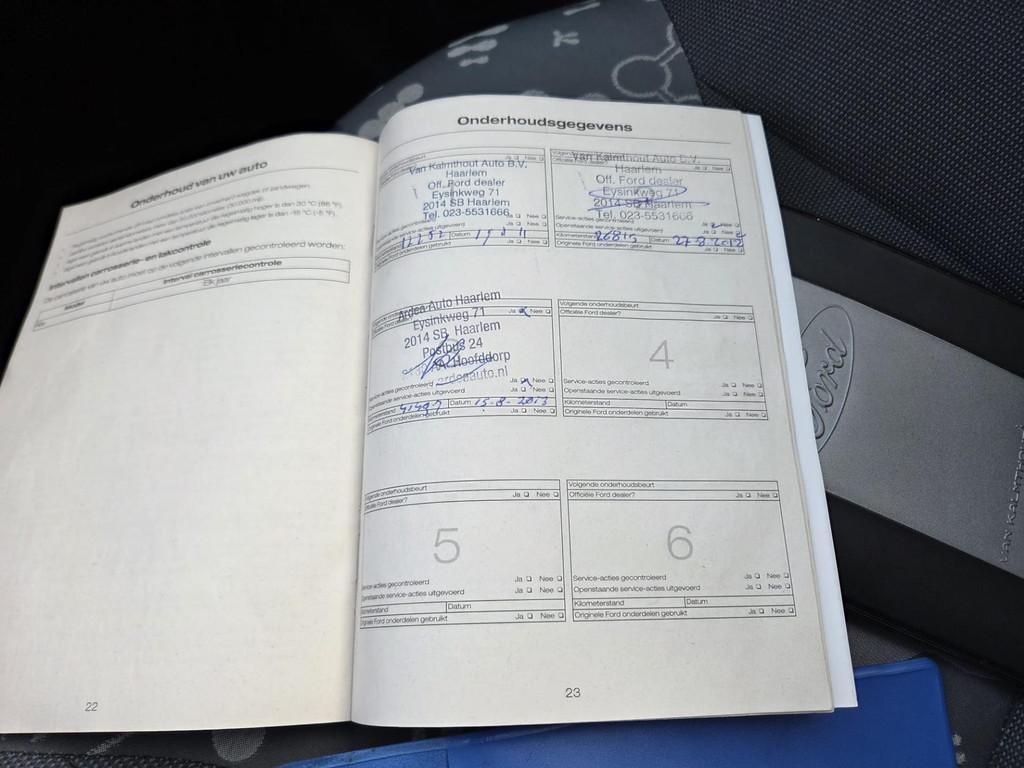 Onderhoud van uw auto
Intervallen carrosserie- en lakcontrole
De carrosserie van uw auto moet op de volgende intervallen gecontroleerd worden:
Model
Interval carrosseriecontrole
Elk jaar
22
Onderhoudsgegevens
Van Kalmthout Auto B.V.
Haarlem
Off. Ford dealer
Eysinkweg 71
2014 SB Haarlem
Tel. 023-5531666
Ja Nee
Datum
Originele Ford onderdelen gebruikt Ja Nee
Van Kalmthout Auto B.V.
Haarlem
Off. Ford dealer
Eysinkweg 71
2014 SB Haarlem
Tel. 023-5531666
Service-acties gecontroleerd Ja Nee
Openstaande service-acties uitgevoerd Ja Nee
Kilometerstand Datum 27-8-2012
Originele Ford onderdelen gebruikt Ja Nee
Ardea Auto Haarlem
Eysinkweg 71
2014 SB Haarlem
Postbus 24
Hoofddorp
ardeaauto.nl
Service-acties gecontroleerd Ja Nee
Openstaande service-acties uitgevoerd Ja Nee
Kilometerstand Datum 15-8-2013
Originele Ford onderdelen gebruikt Ja Nee
Volgende onderhoudsbeurt
Officiële Ford dealer? Ja Nee
4
Service-acties gecontroleerd Ja Nee
Openstaande service-acties uitgevoerd Ja Nee
Kilometerstand Datum
Originele Ford onderdelen gebruikt Ja Nee
Volgende onderhoudsbeurt
Officiële Ford dealer? Ja Nee
5
Service-acties gecontroleerd Ja Nee
Openstaande service-acties uitgevoerd Ja Nee
Kilometerstand Datum
Originele Ford onderdelen gebruikt Ja Nee
Volgende onderhoudsbeurt
Officiële Ford dealer? Ja Nee
6
Service-acties gecontroleerd Ja Nee
Openstaande service-acties uitgevoerd Ja Nee
Kilometerstand Datum
Originele Ford onderdelen gebruikt Ja Nee
23
Ford
VAN KALMTHOUT